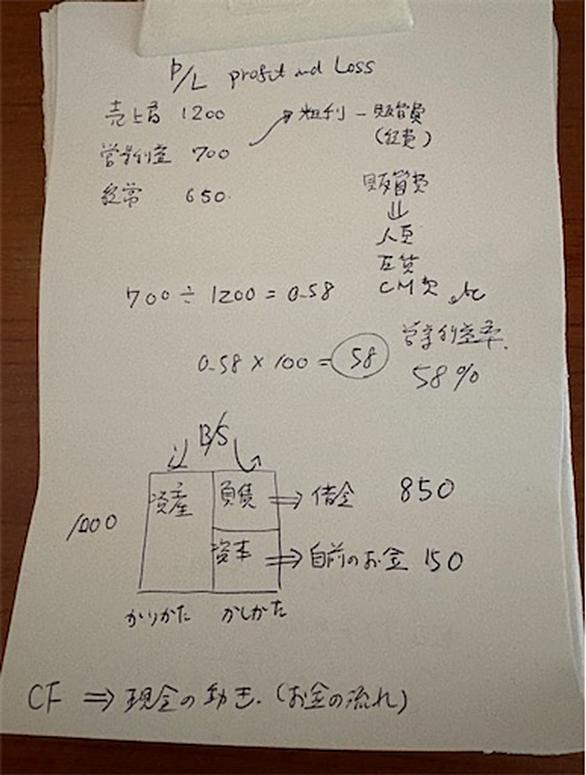 P/L profit and Loss
売上高 1200 粗利 - 販管費
(経費)
営業利益 700
経常 650
販管費
⇓
人件
家賃
CM代 etc
700 ÷ 1200 = 0.58
0.58 × 100 = 58
営業利益率
58%
B/S
資産 負債 ⇒ 借金 850
1000
資本 ⇒ 自前のお金 150
かりかた かしかた
CF ⇒ 現金の動き. (お金の流れ)